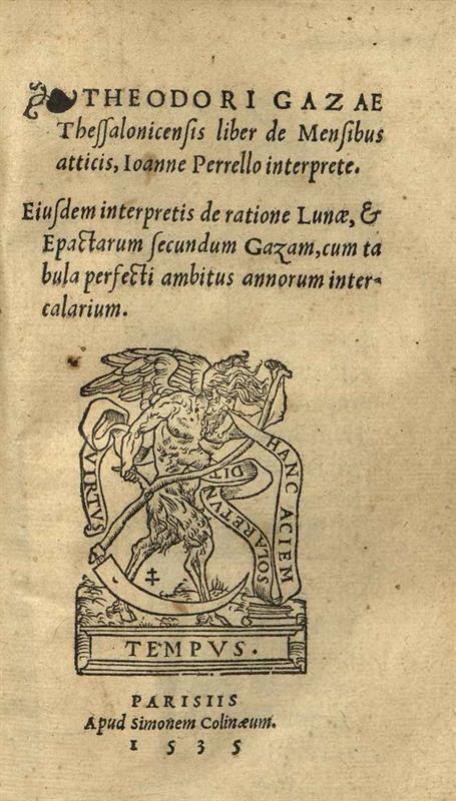 THEODORI GAZAE
Theſſalonicenſis liber de Menſibus
atticis, Ioanne Perrello interprete.
Eiuſdem interpretis de ratione Lunæ, &
Epactarum ſecundum Gazam, cum ta
bula perfecti ambitus annorum inter-
calarium.
HANC ACIEM
SOLA RETUN
DIT
VIRTUS
TEMPVS.
PARISIIS
Apud Simonem Colinæum.
1535